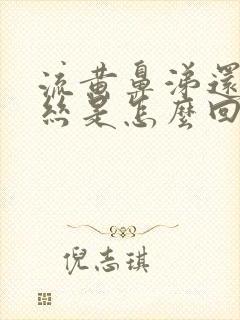 流黄鼻涕還
絲是怎麼回
倪志琪